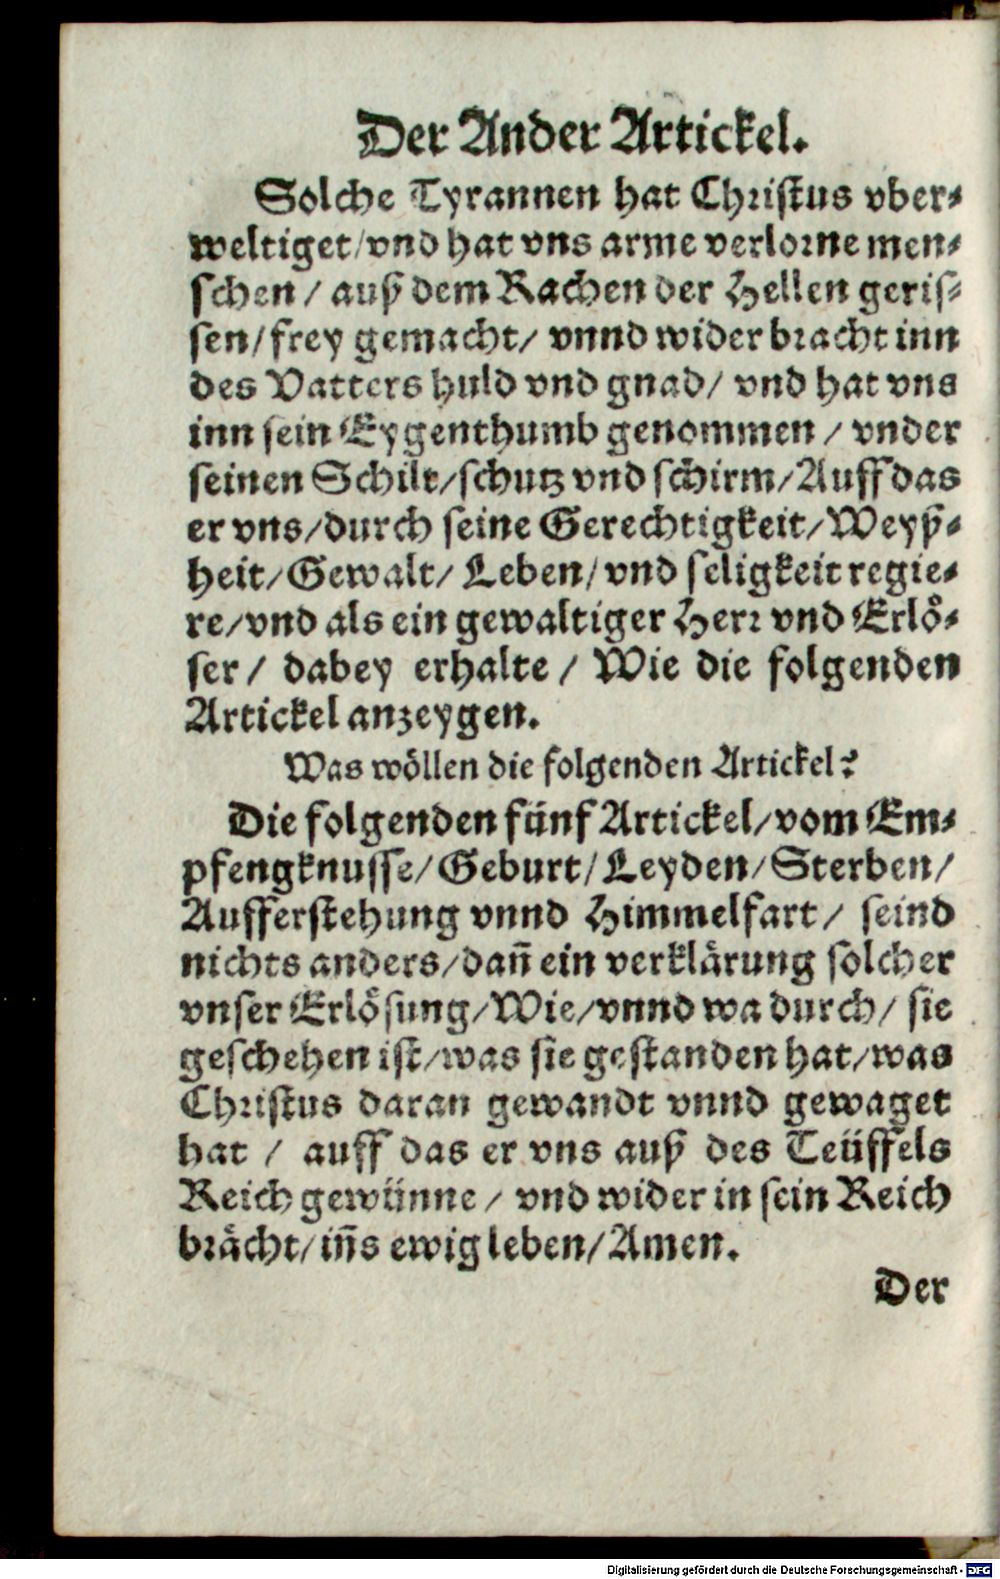 Der Ander Artickel.
Solche Tyrannen hat Christus vber-
weltiget/vnd hat vns arme verlorne men-
schen / auß dem Rachen der Hellen geris-
sen/frey gemacht/ vnnd wider bracht inn
des Vatters huld vnd gnad/ vnd hat vns
inn sein Eygenthumb genommen / vnder
seinen Schilt/schutz vnd schirm/Auff das
er vns/durch seine Gerechtigkeit/Weyß-
heit/Gewalt/ Leben/vnd seligkeit regie-
re/vnd als ein gewaltiger Herr vnd Erlö-
ser / dabey erhalte / Wie die folgenden
Artickel anzeygen.
Was wöllen die folgenden Artickel?
Die folgenden fünf Artickel/vom Em-
pfengknusse/Geburt/Leyden/Sterben/
Aufferstehung vnnd Himmelfart / seind
nichts anders/dañ ein verklärung solcher
vnser Erlösung/Wie/vnnd wa durch/ sie
geschehen ist/was sie gestanden hat/was
Christus daran gewandt vnnd gewaget
hat / auff das er vns auß des Teüffels
Reich gewünne / vnd wider in sein Reich
brächt/iñs ewig leben/Amen.
Der
Digitalisierung gefördert durch die Deutsche Forschungsgemeinschaft - DFG